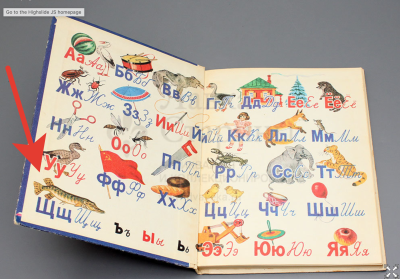 Go to the Highslide JS homepage
Аа Аа Бб Бб Вв Вв
Гг Гг Дд Дд Ее Ее Ёё Ёё
Жж Жж Зз Зз Ии Ии
Йй Йй Кк Кк Лл Лл Мм Мм
Нн Нн Оо Оо Пп Пп
Рр Рр Сс Сс Тт Тт
Уу Уу Фф Фф Хх Хх
Цц Цц Чч Чч Шш Шш
Щщ Щщ Ъъ Ыы Ьь
Ээ Ээ Юю Юю Яя Яя